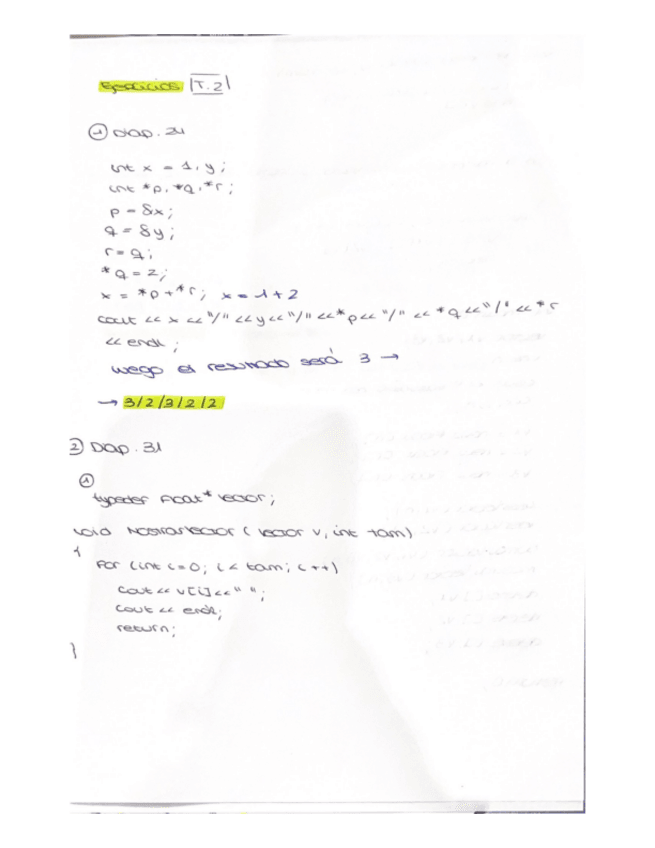 Ejercicios T.2
1 Diap. 24
int x = 1, y;
int *p, *q, *r;
p = &x;
q = &y;
r = q;
*q = 2;
x = *p + *r; x = 1 + 2
cout << x << "/" << y << "/" << *p << "/" << *q << "/" << *r
<< endl;
luego el resultado será 3 →
→ 3/2/3/2/2
2 Diap. 31
1
typedef float* vector;
void MostrarVector ( vector v, int tam)
{
for (int i=0; i < tam; i++)
cout << v[i] << " ";
cout << endl;
return;
}